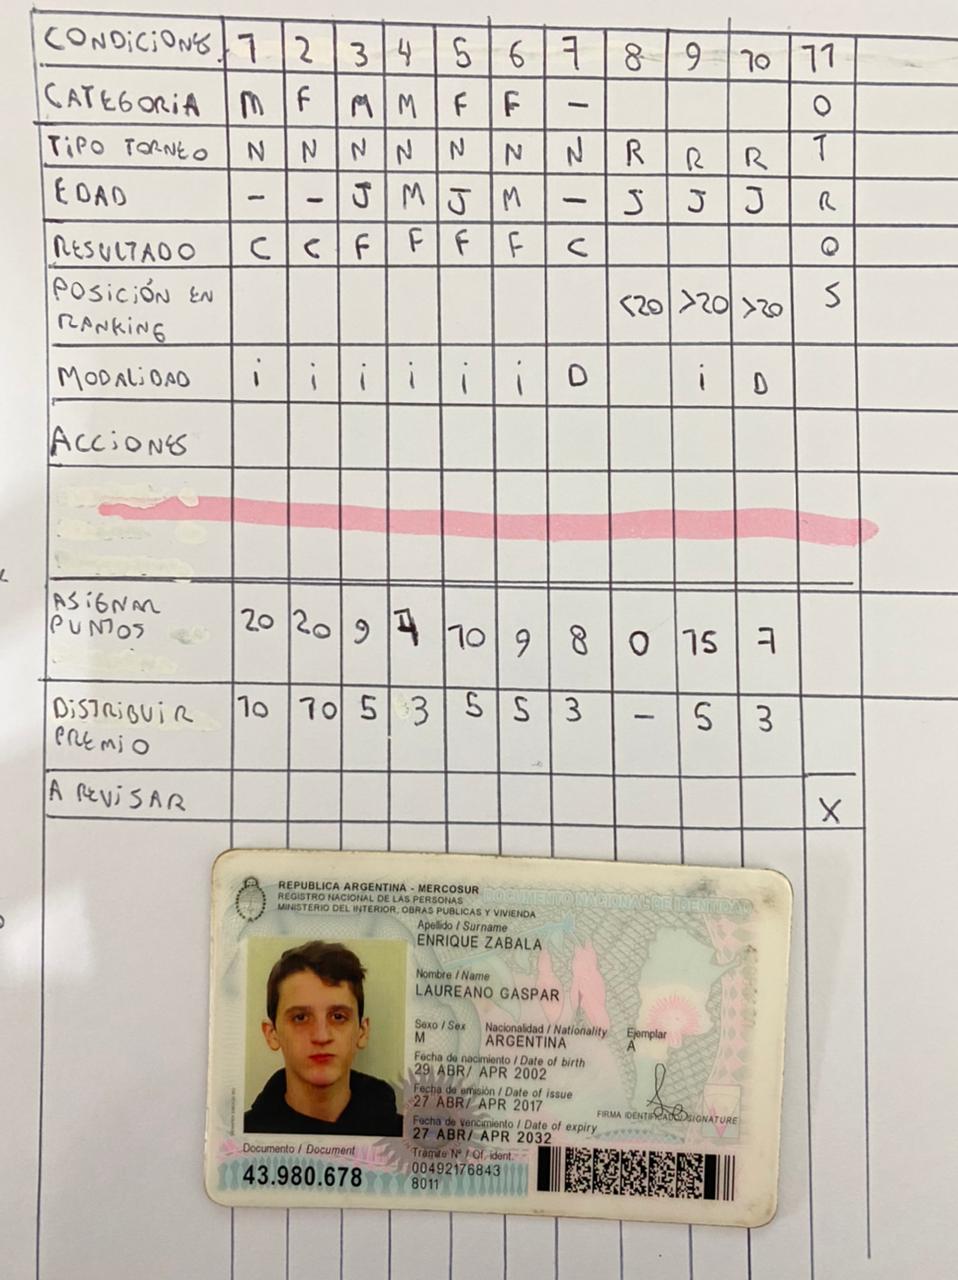 CONDICIONES 1 2 3 4 5 6 7 8 9 10 11
CATEGORIA M F M M F F - O
TIPO TORNEO N N N N N N N R R R T
EDAD - - J M J M - J J J R
RESULTADO C C F F F F C O
POSICIÓN EN
RANKING <20 >20 >20 S
MODALIDAD i i i i i i D i D
ACCIONES
ASIGNAR
PUNTOS 20 20 9 10 9 8 0 15 7
DISTRIBUIR
PREMIO 10 10 5 3 5 5 3 - 5 3
A REVISAR X
REPUBLICA ARGENTINA - MERCOSUR
REGISTRO NACIONAL DE LAS PERSONAS
MINISTERIO DEL INTERIOR, OBRAS PUBLICAS Y VIVIENDA
DOCUMENTO NACIONAL DE IDENTIDAD
Apellido / Surname
ENRIQUE ZABALA
Nombre / Name
LAUREANO GASPAR
Sexo / Sex Nacionalidad / Nationality Ejemplar
M ARGENTINA A
Fecha de nacimiento / Date of birth
29 ABR/ APR 2002
Fecha de emisión / Date of issue
27 ABR/ APR 2017
FIRMA IDENTIFICADO / SIGNATURE
Fecha de vencimiento / Date of expiry
27 ABR/ APR 2032
Documento / Document
43.980.678
Trámite Nº / Of. ident.
00492176843
8011